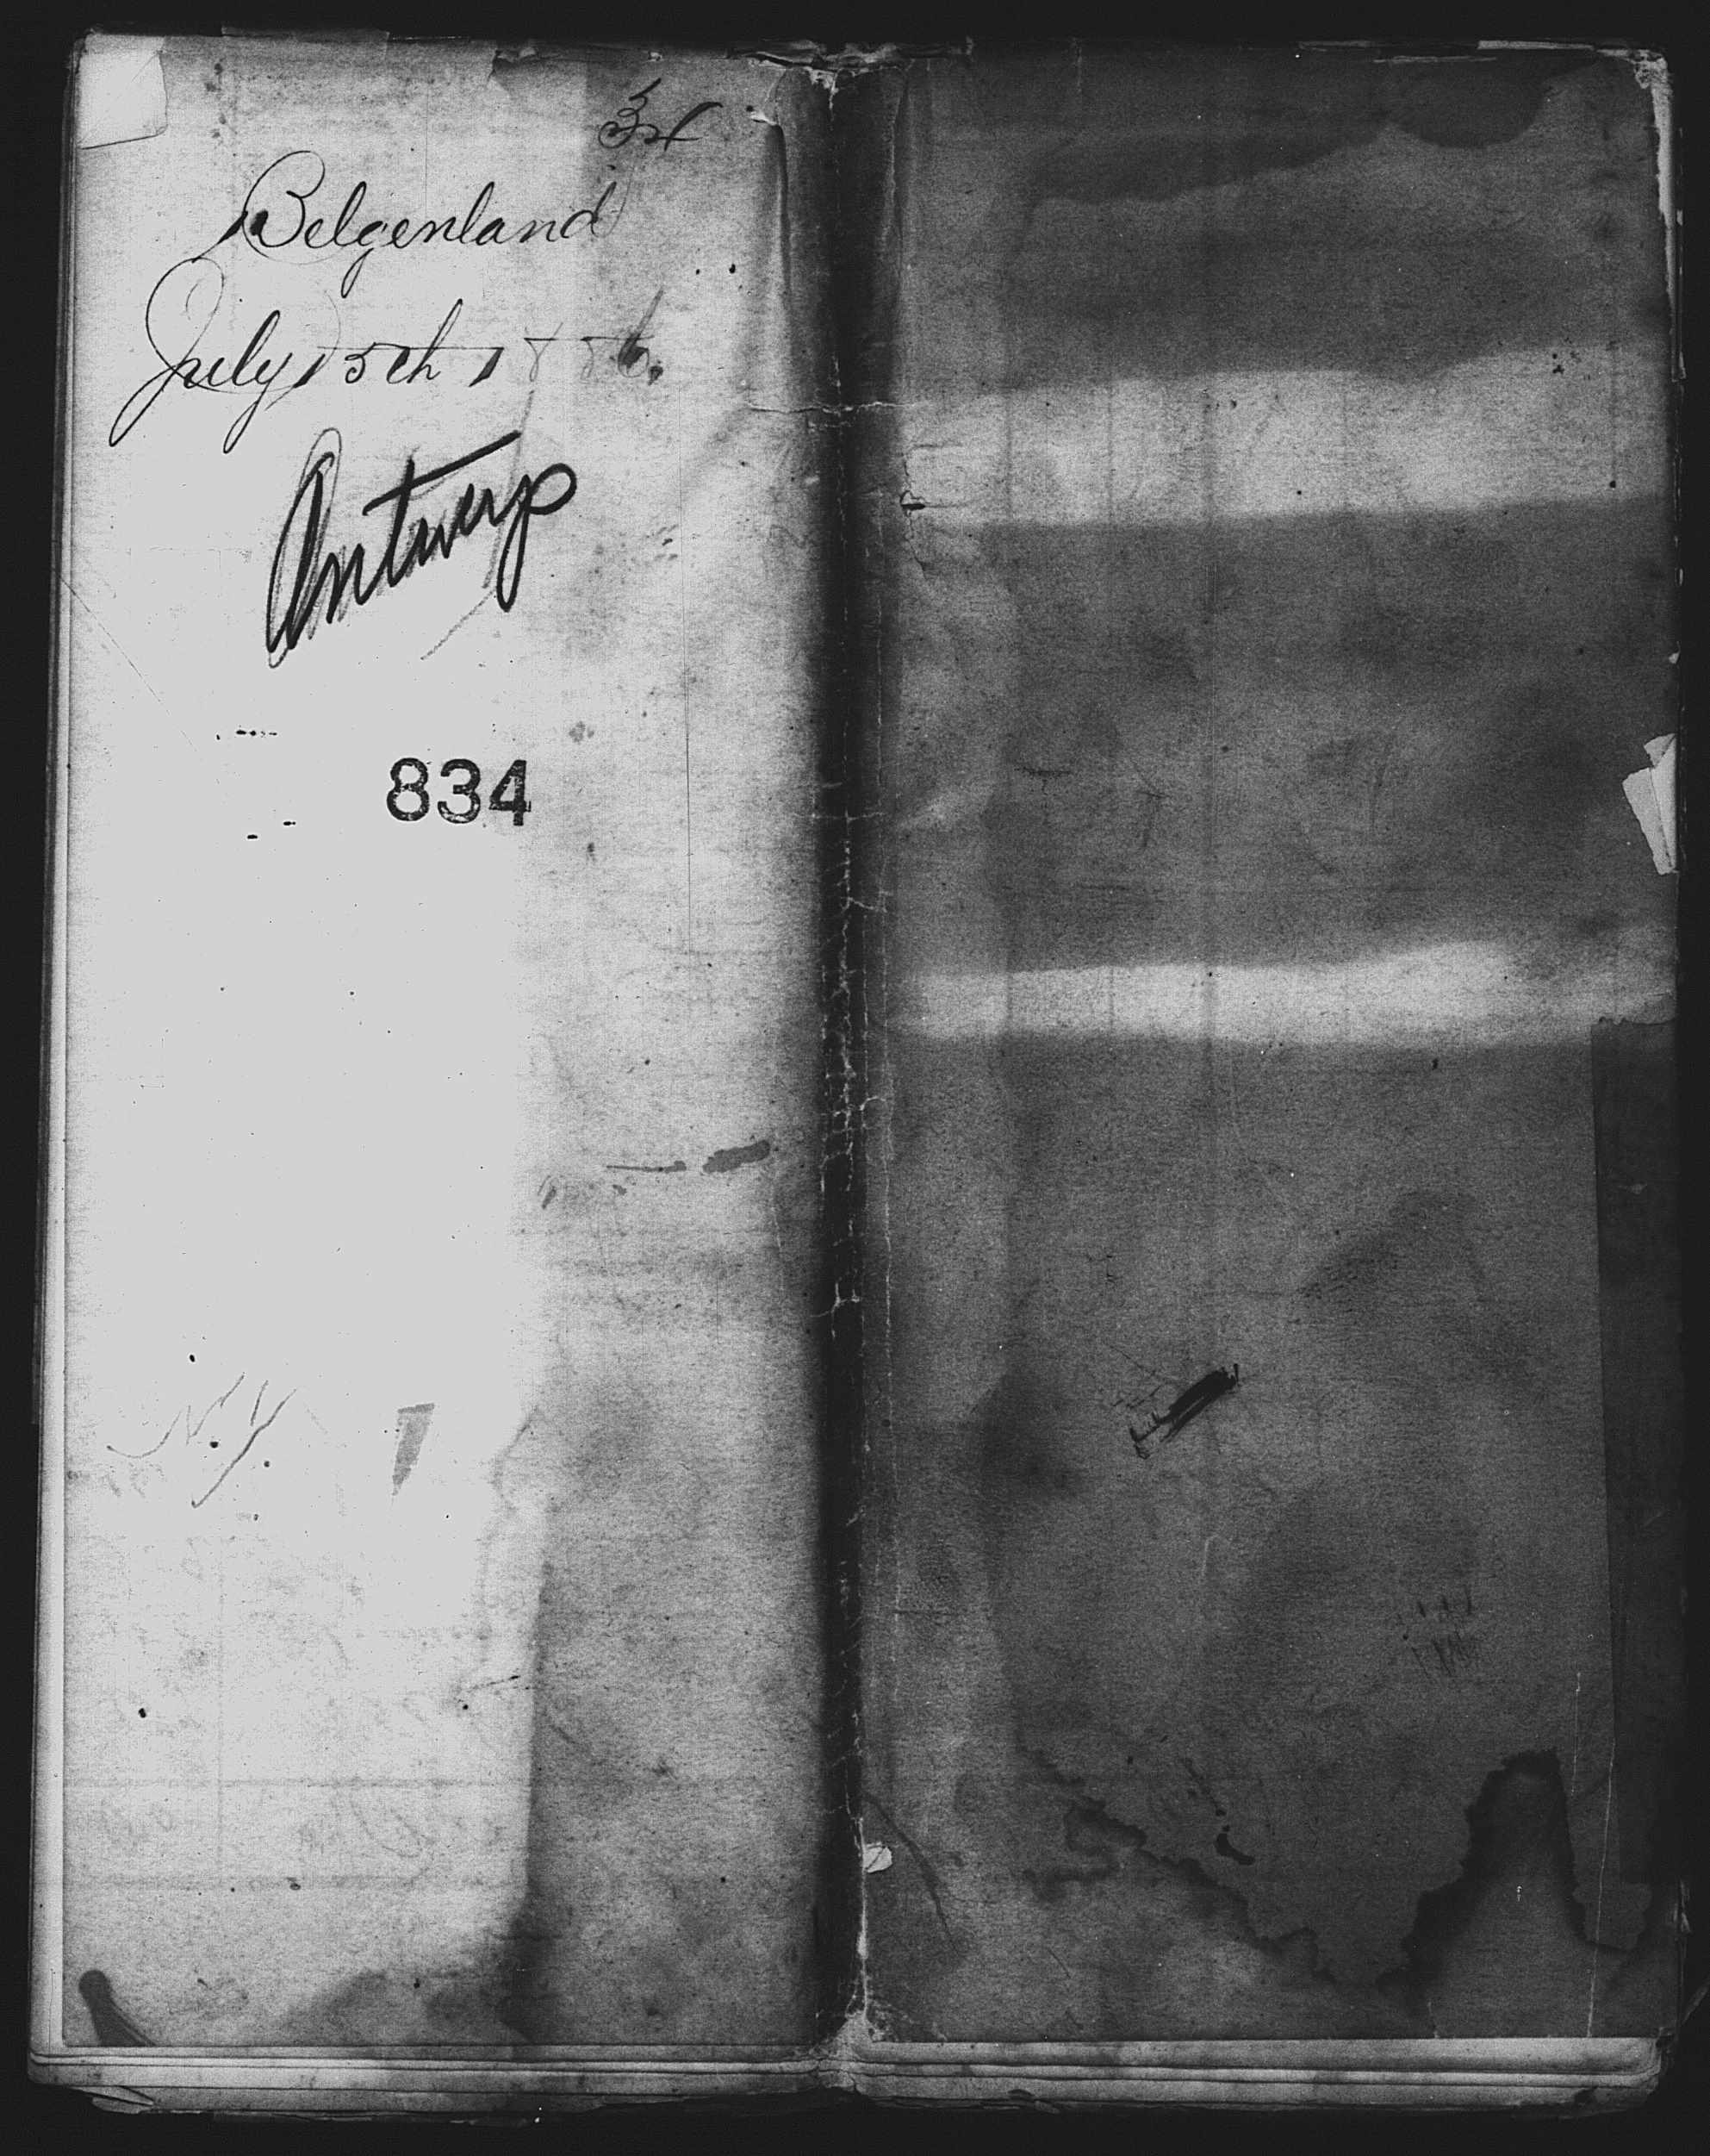 34
Belgenland
July 15th 1886.
Antwerp
834
N.Y